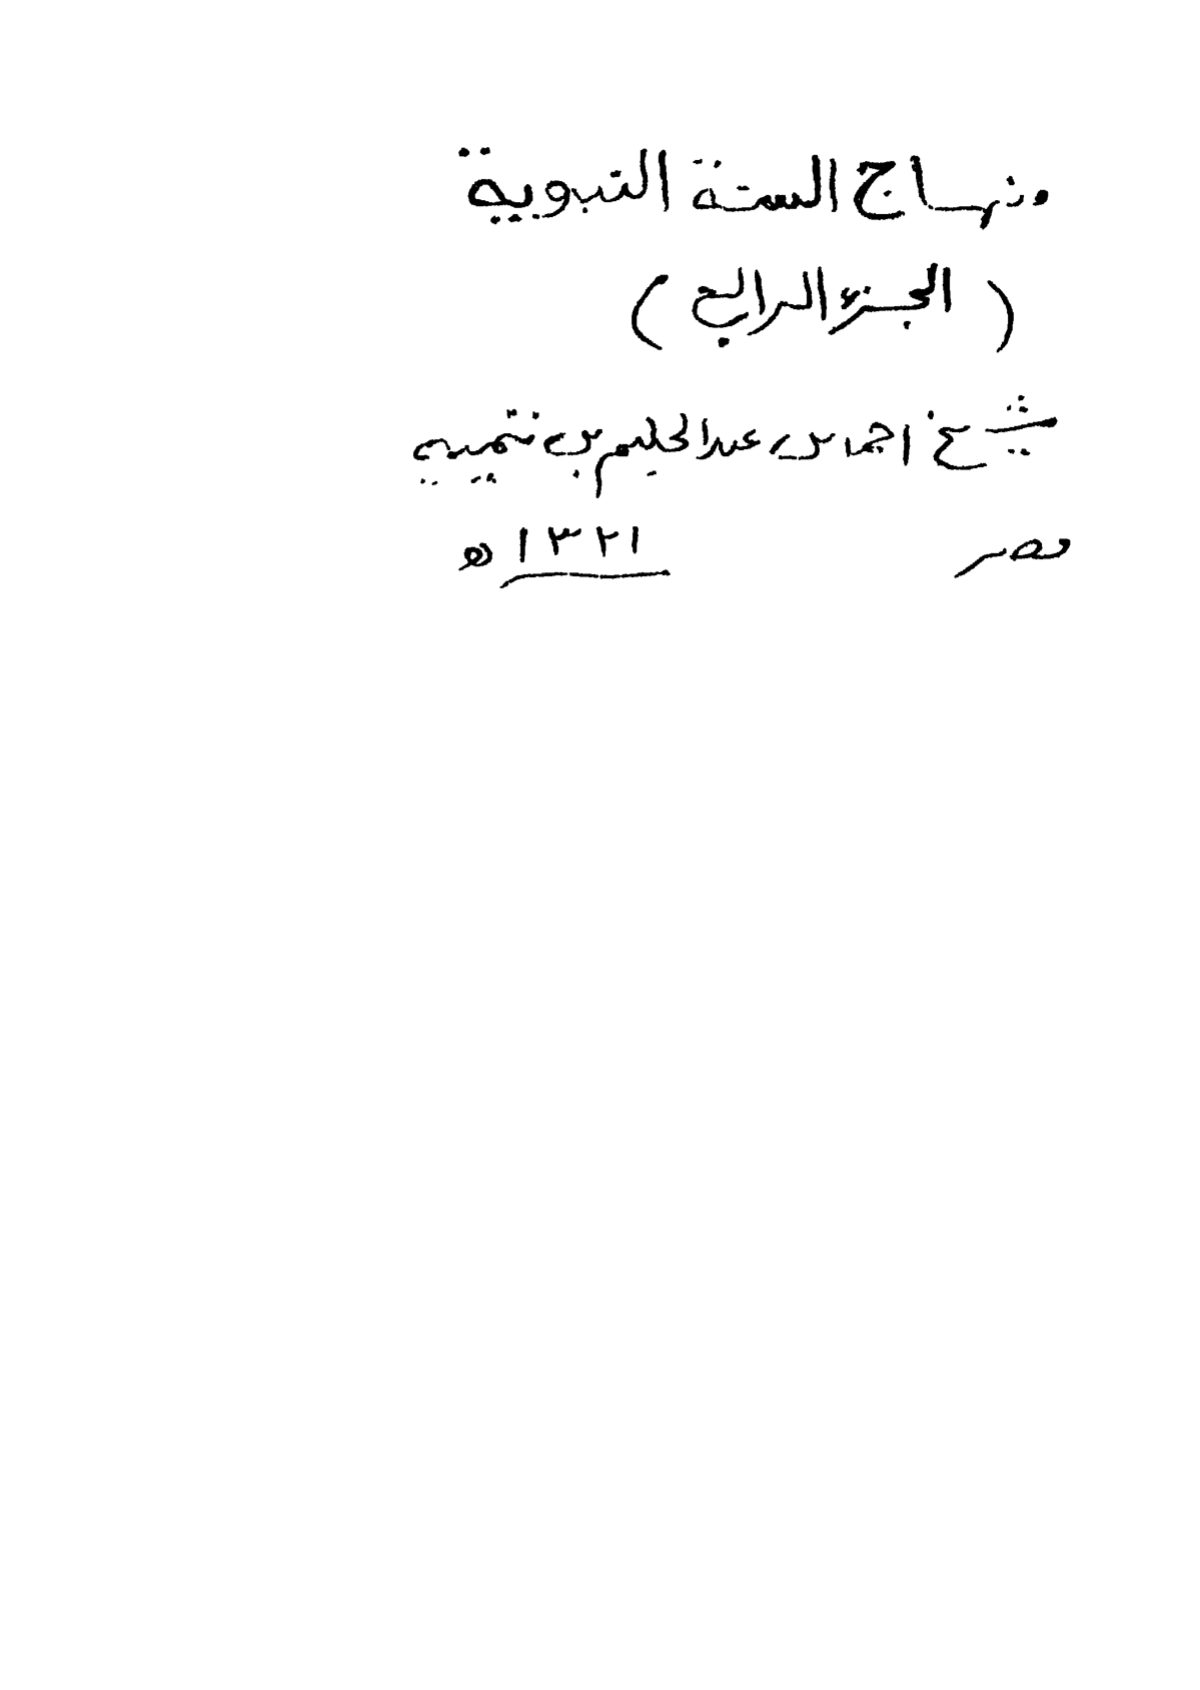 منهاج السنة النبوية
( الجزء الرابع )
شيخ احمد بن عبدالحليم بن تيميه
مصر ١٣٢١ ه